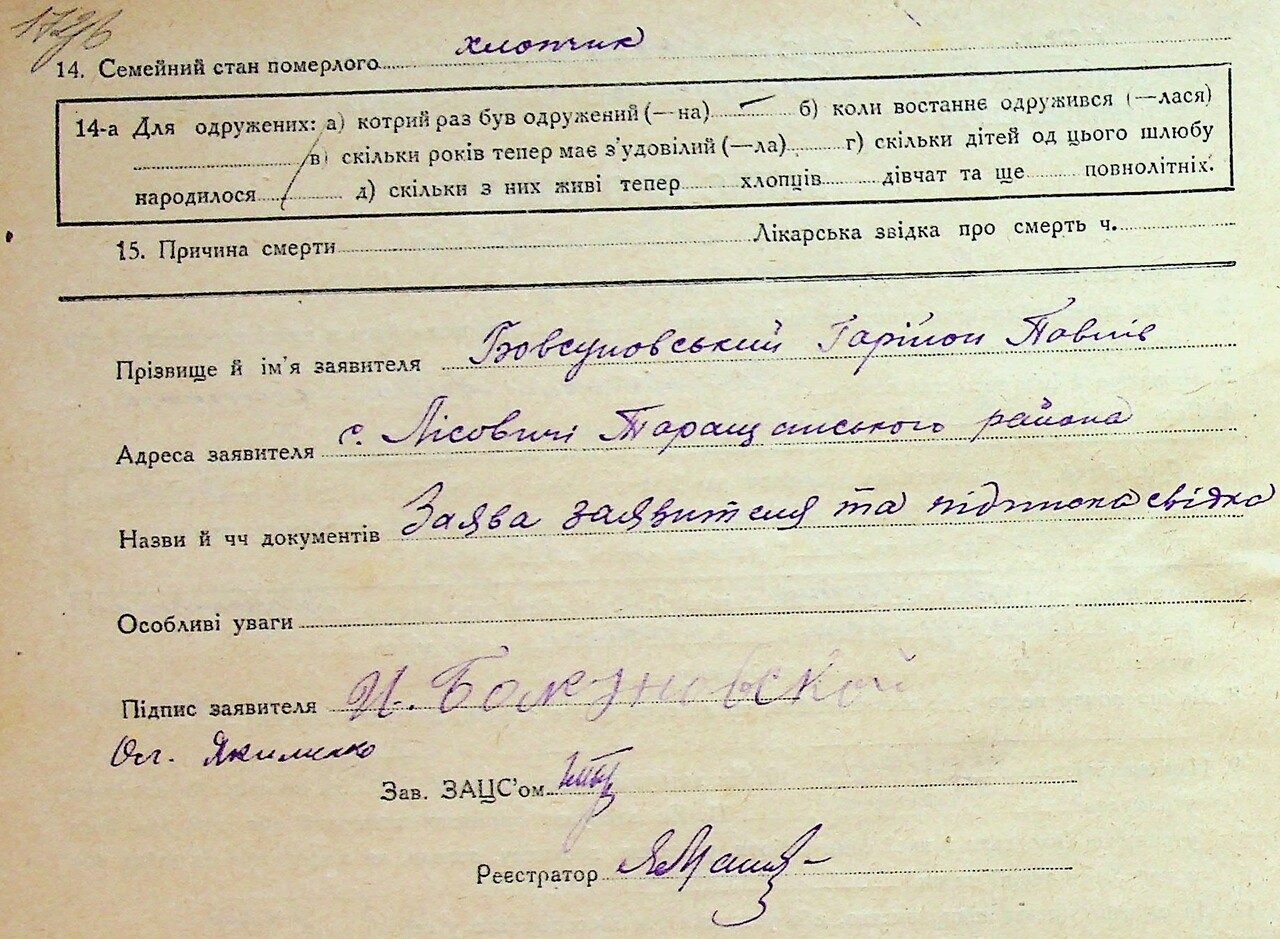 1796
14. Семейний стан померлого хлопчик
14-а Для одружених: а) котрий раз був одружений (—на) — б) коли востаннє одружився (—лася)
в) скільки років тепер має з'удовілий (—ла) г) скільки дітей од цього шлюбу
народилося д) скільки з них живі тепер хлопців дівчат та ще повнолітніх.
15. Причина смерти Лікарська звідка про смерть ч.
Прізвище й ім'я заявителя Бовсуновський Гарійон Павлів
Адреса заявителя с. Лісовичі Таращанського района
Назви й чч документів Заява заявителя та підписка свідка
Особливі уваги
Підпис заявителя
Ол. Якименко
Зав. ЗАЦС'ом
Реєстратор